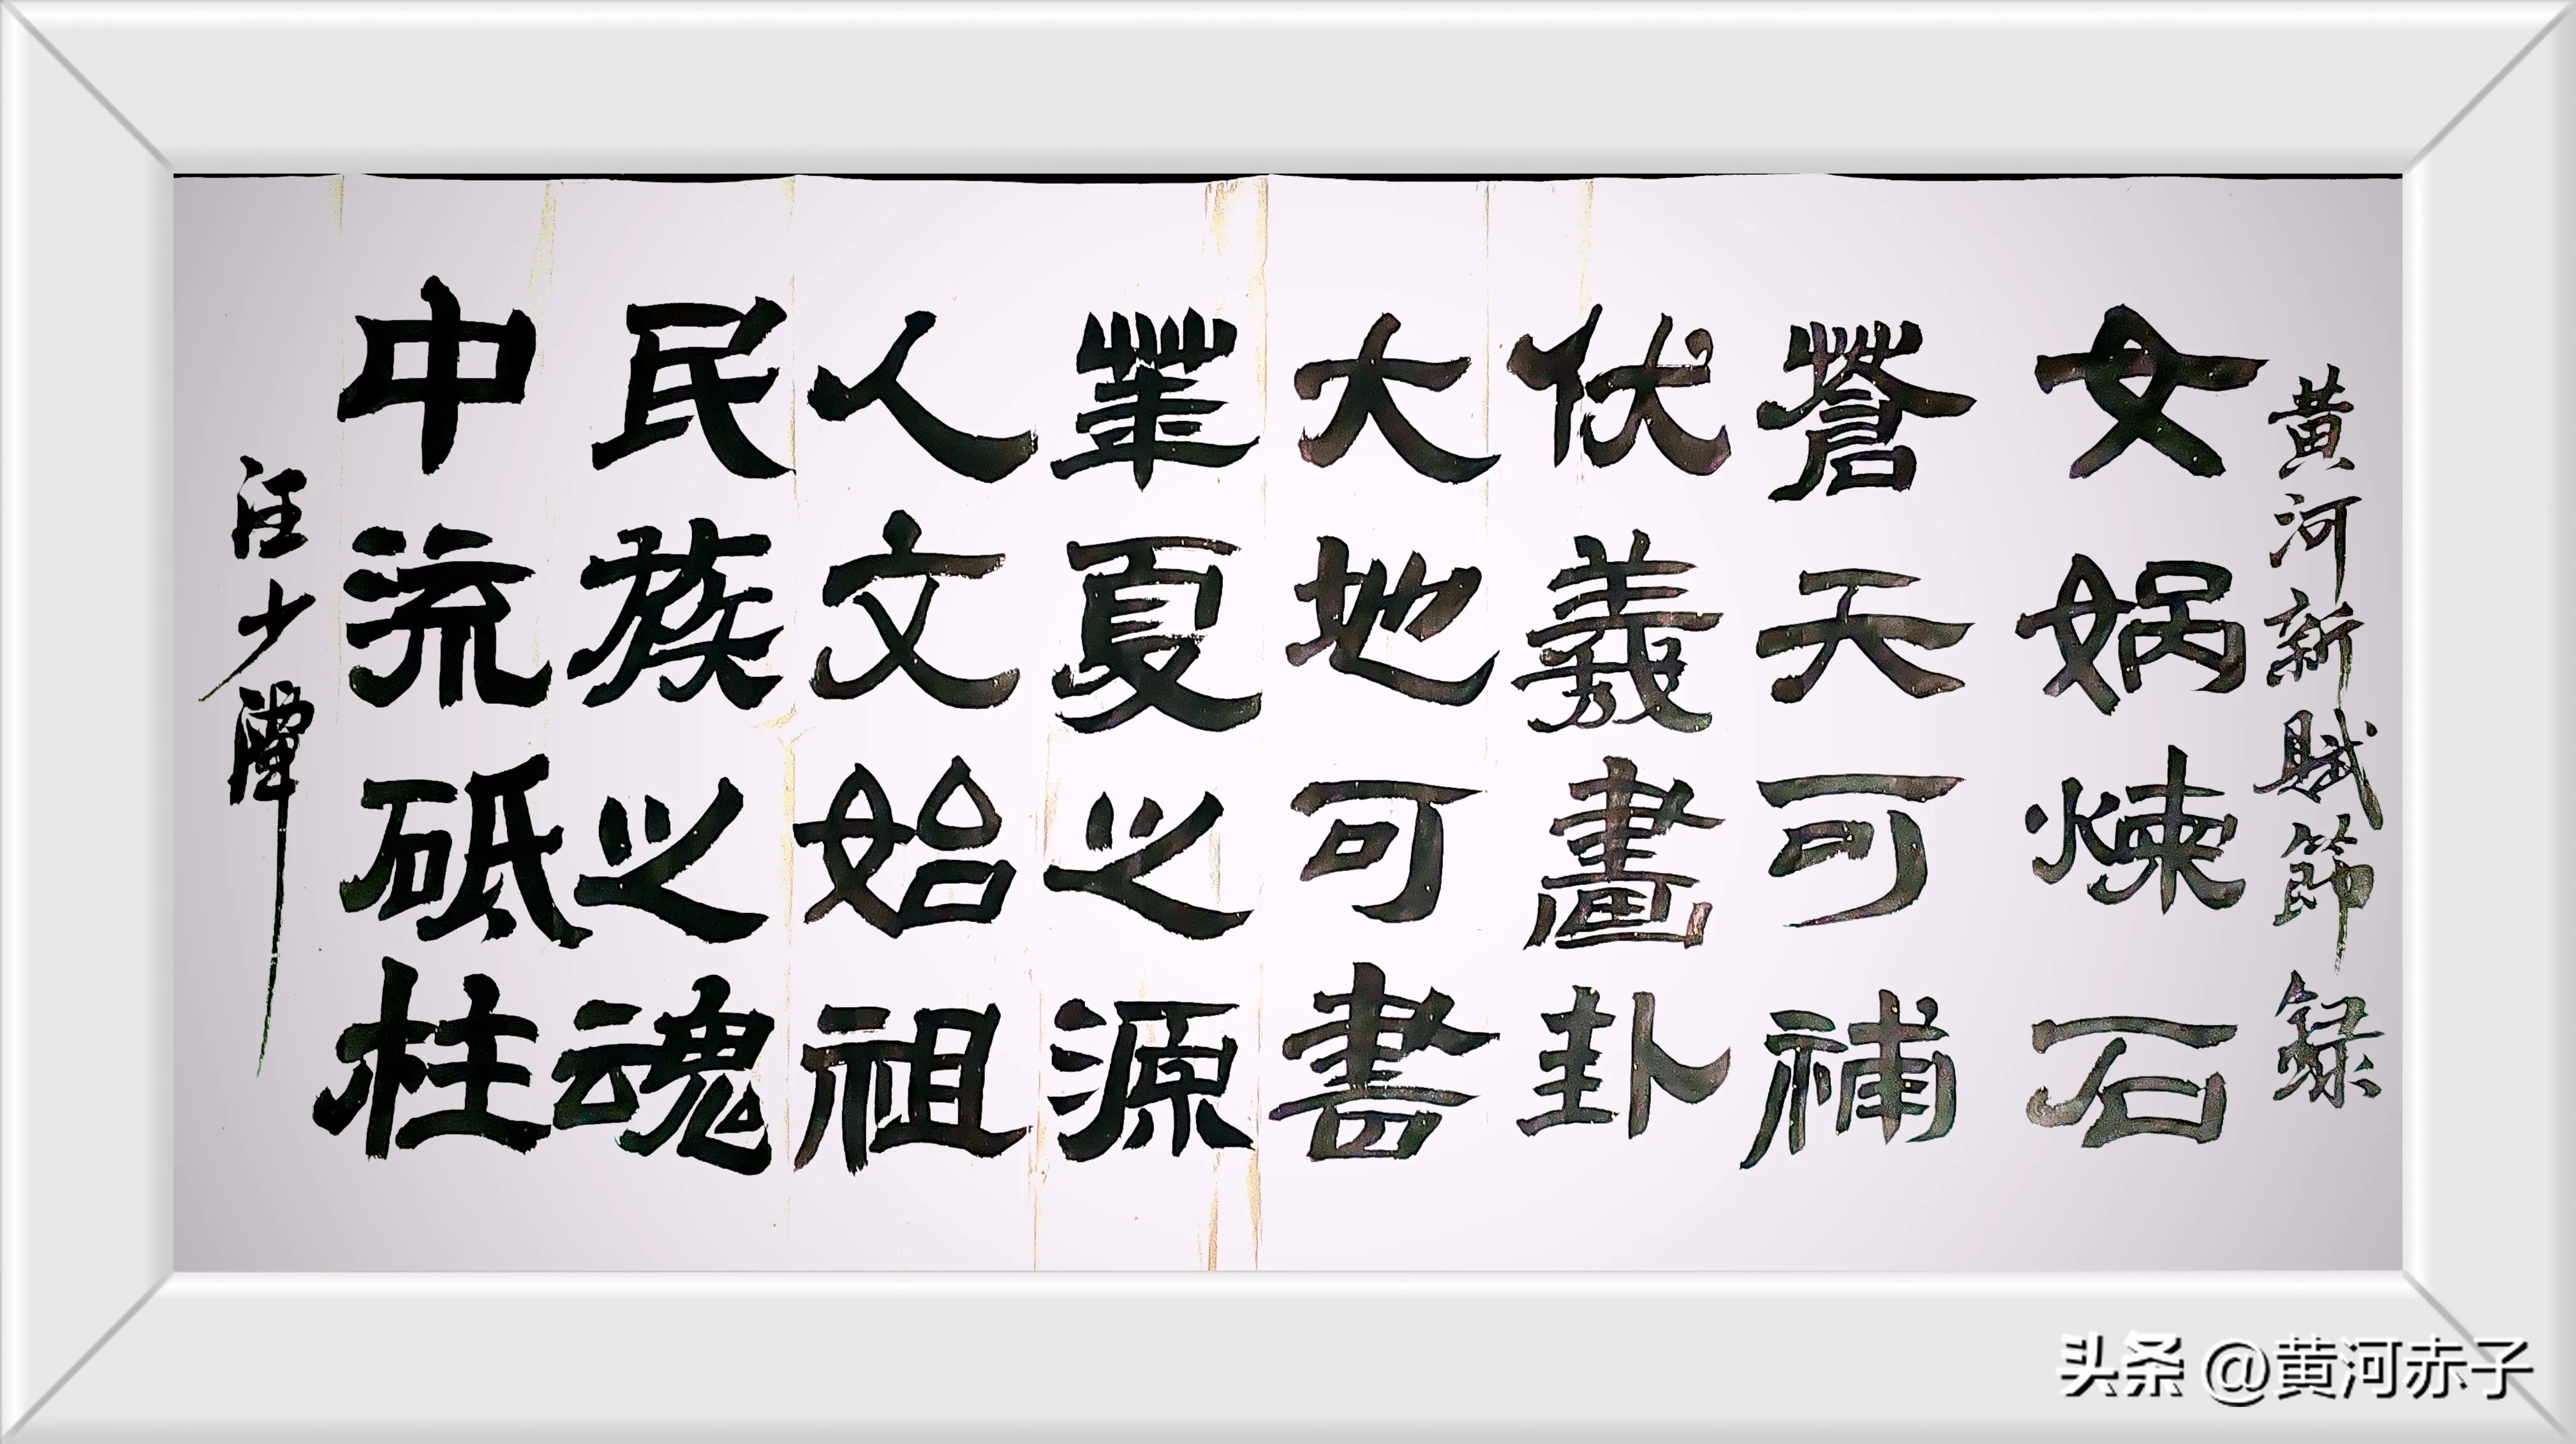 黄河新賦節録
女娲煉石
蒼天可補
伏羲畫卦
大地可書
華夏之源
人文始祖
民族之魂
中流砥柱
汪少潭
头条 @黄河赤子